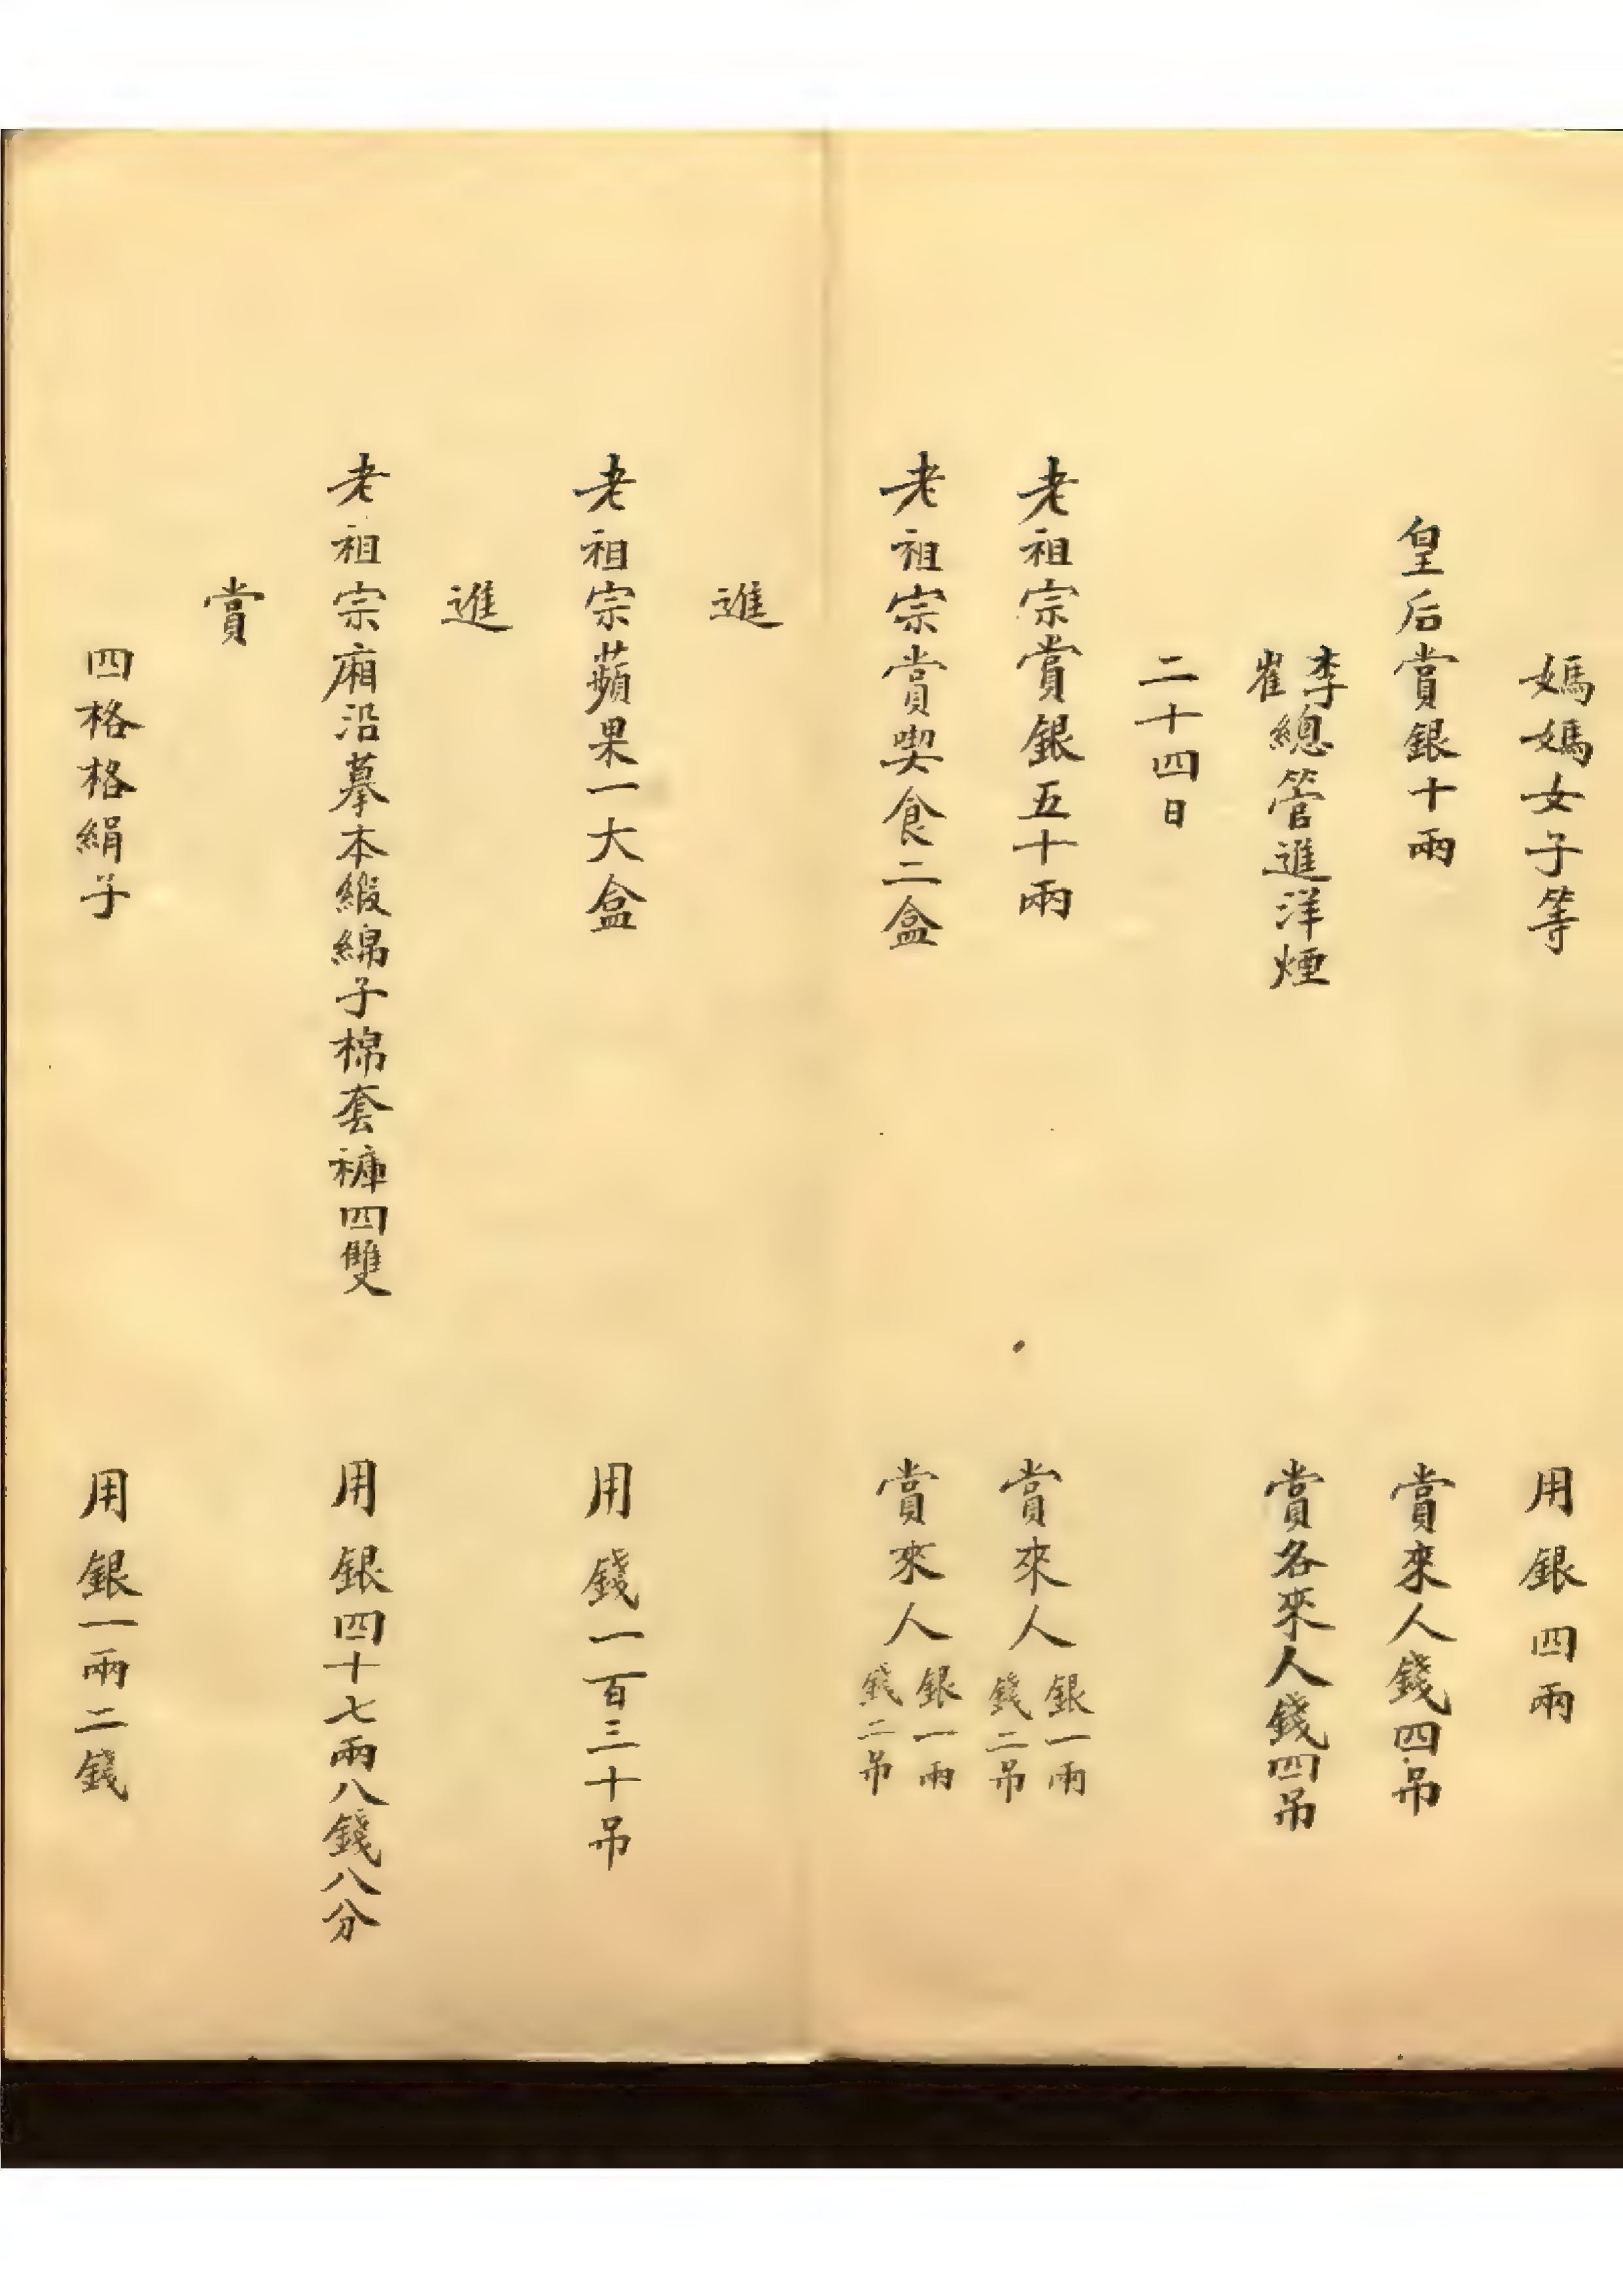 媽媽女子等 用銀四兩
皇后賞銀十兩 賞來人錢四吊
李崔總管進洋煙 賞各來人錢四吊
二十四日
老祖宗賞銀五十兩 賞來人銀一兩錢二吊
老祖宗賞喫食二盒 賞來人銀一兩錢二吊
進
老祖宗蘋果一大盒 用錢一百三十吊
進
老祖宗廂沿摹本緞綿子棉套褲四雙 用銀四十七兩八錢八分
賞
四格格絹子 用銀一兩二錢